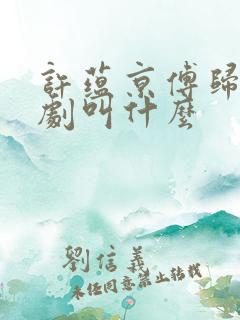 許蘊京傅歸
劇叫什麼
劉信義
未经同意禁止转载